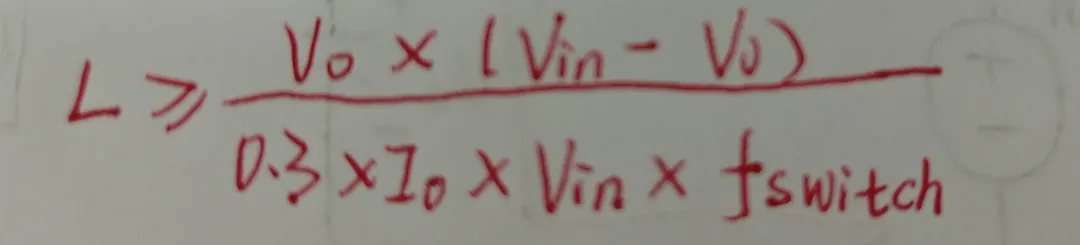 L ≥ Vo × (Vin - Vo) / 0.3 × Io × Vin × fswitch